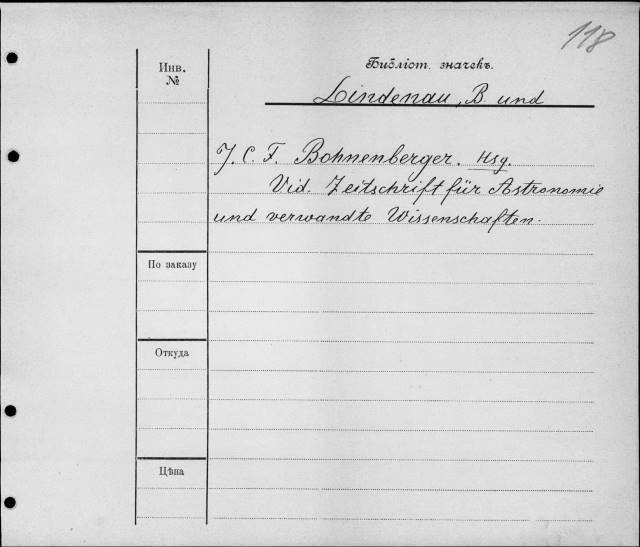 118
Библіот. значекъ.
Инв.
№
Lindenau, B. und
J. C. F. Bohnenberger. Hsg.
Vid. Zeitschrift für Astronomie
und verwandte Wissenschaften.
По заказу
Откуда
Цѣна